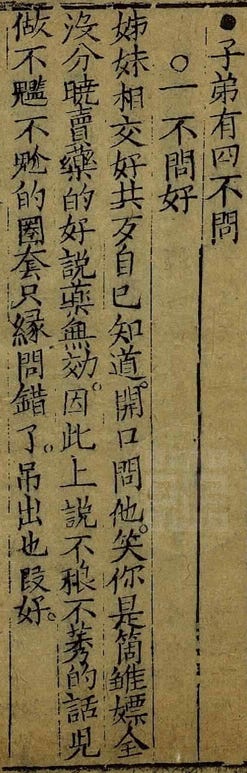 ●子弟有四不問
○一不問好
姊妹相交好共歹自已知道。開口問他。笑你是箇雏嫖全
沒分曉賣藥的好說藥無効。因此上說不稂不莠的話兒
做不尷不尬的圈套只緣問錯了。吊出也段好。